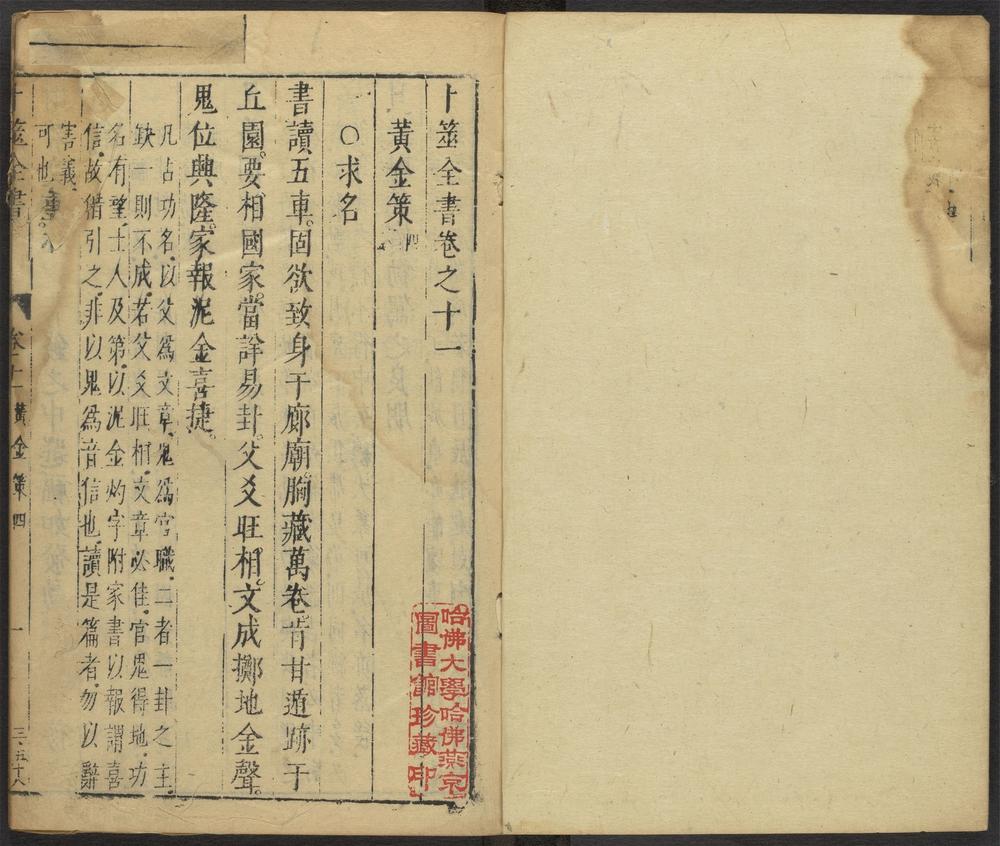 卜筮全書卷之十一
黃金策 四
○求名
書讀五車。固欲致身于廊廟。胸藏萬卷。肯甘遁跡于
丘園。要相國家。當詳易卦。父爻旺相。文成擲地金聲。
鬼位興隆。家報泥金喜捷。
凡占功名。以父爲文章。鬼爲官職。二者一卦之主。
缺一則不成。若父爻旺相。文章必佳。官鬼得地。功
名有望。士人及第。以泥金灼字附家書以報。謂喜
信。故借引之。非以鬼爲音信也。讀是篇者。勿以辭
害義
可也
卜筮全書 卷十一 黃金策四 一
哈佛大學哈佛燕京
圖書館珍藏印